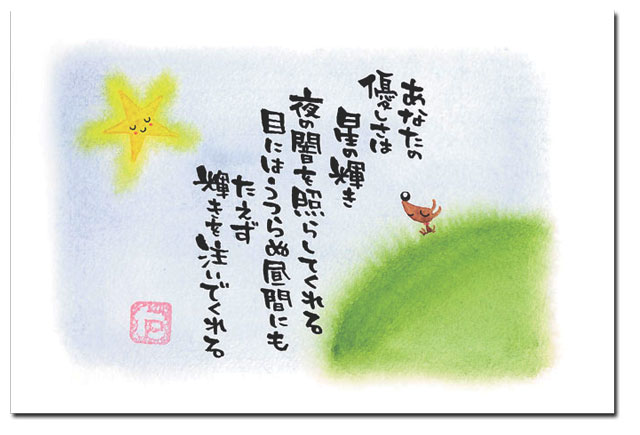 あなたの
優しさは
星の輝き
夜の闇を照らしてくれる
目にはうつらぬ昼間にも
たえず
輝きを注いでくれる